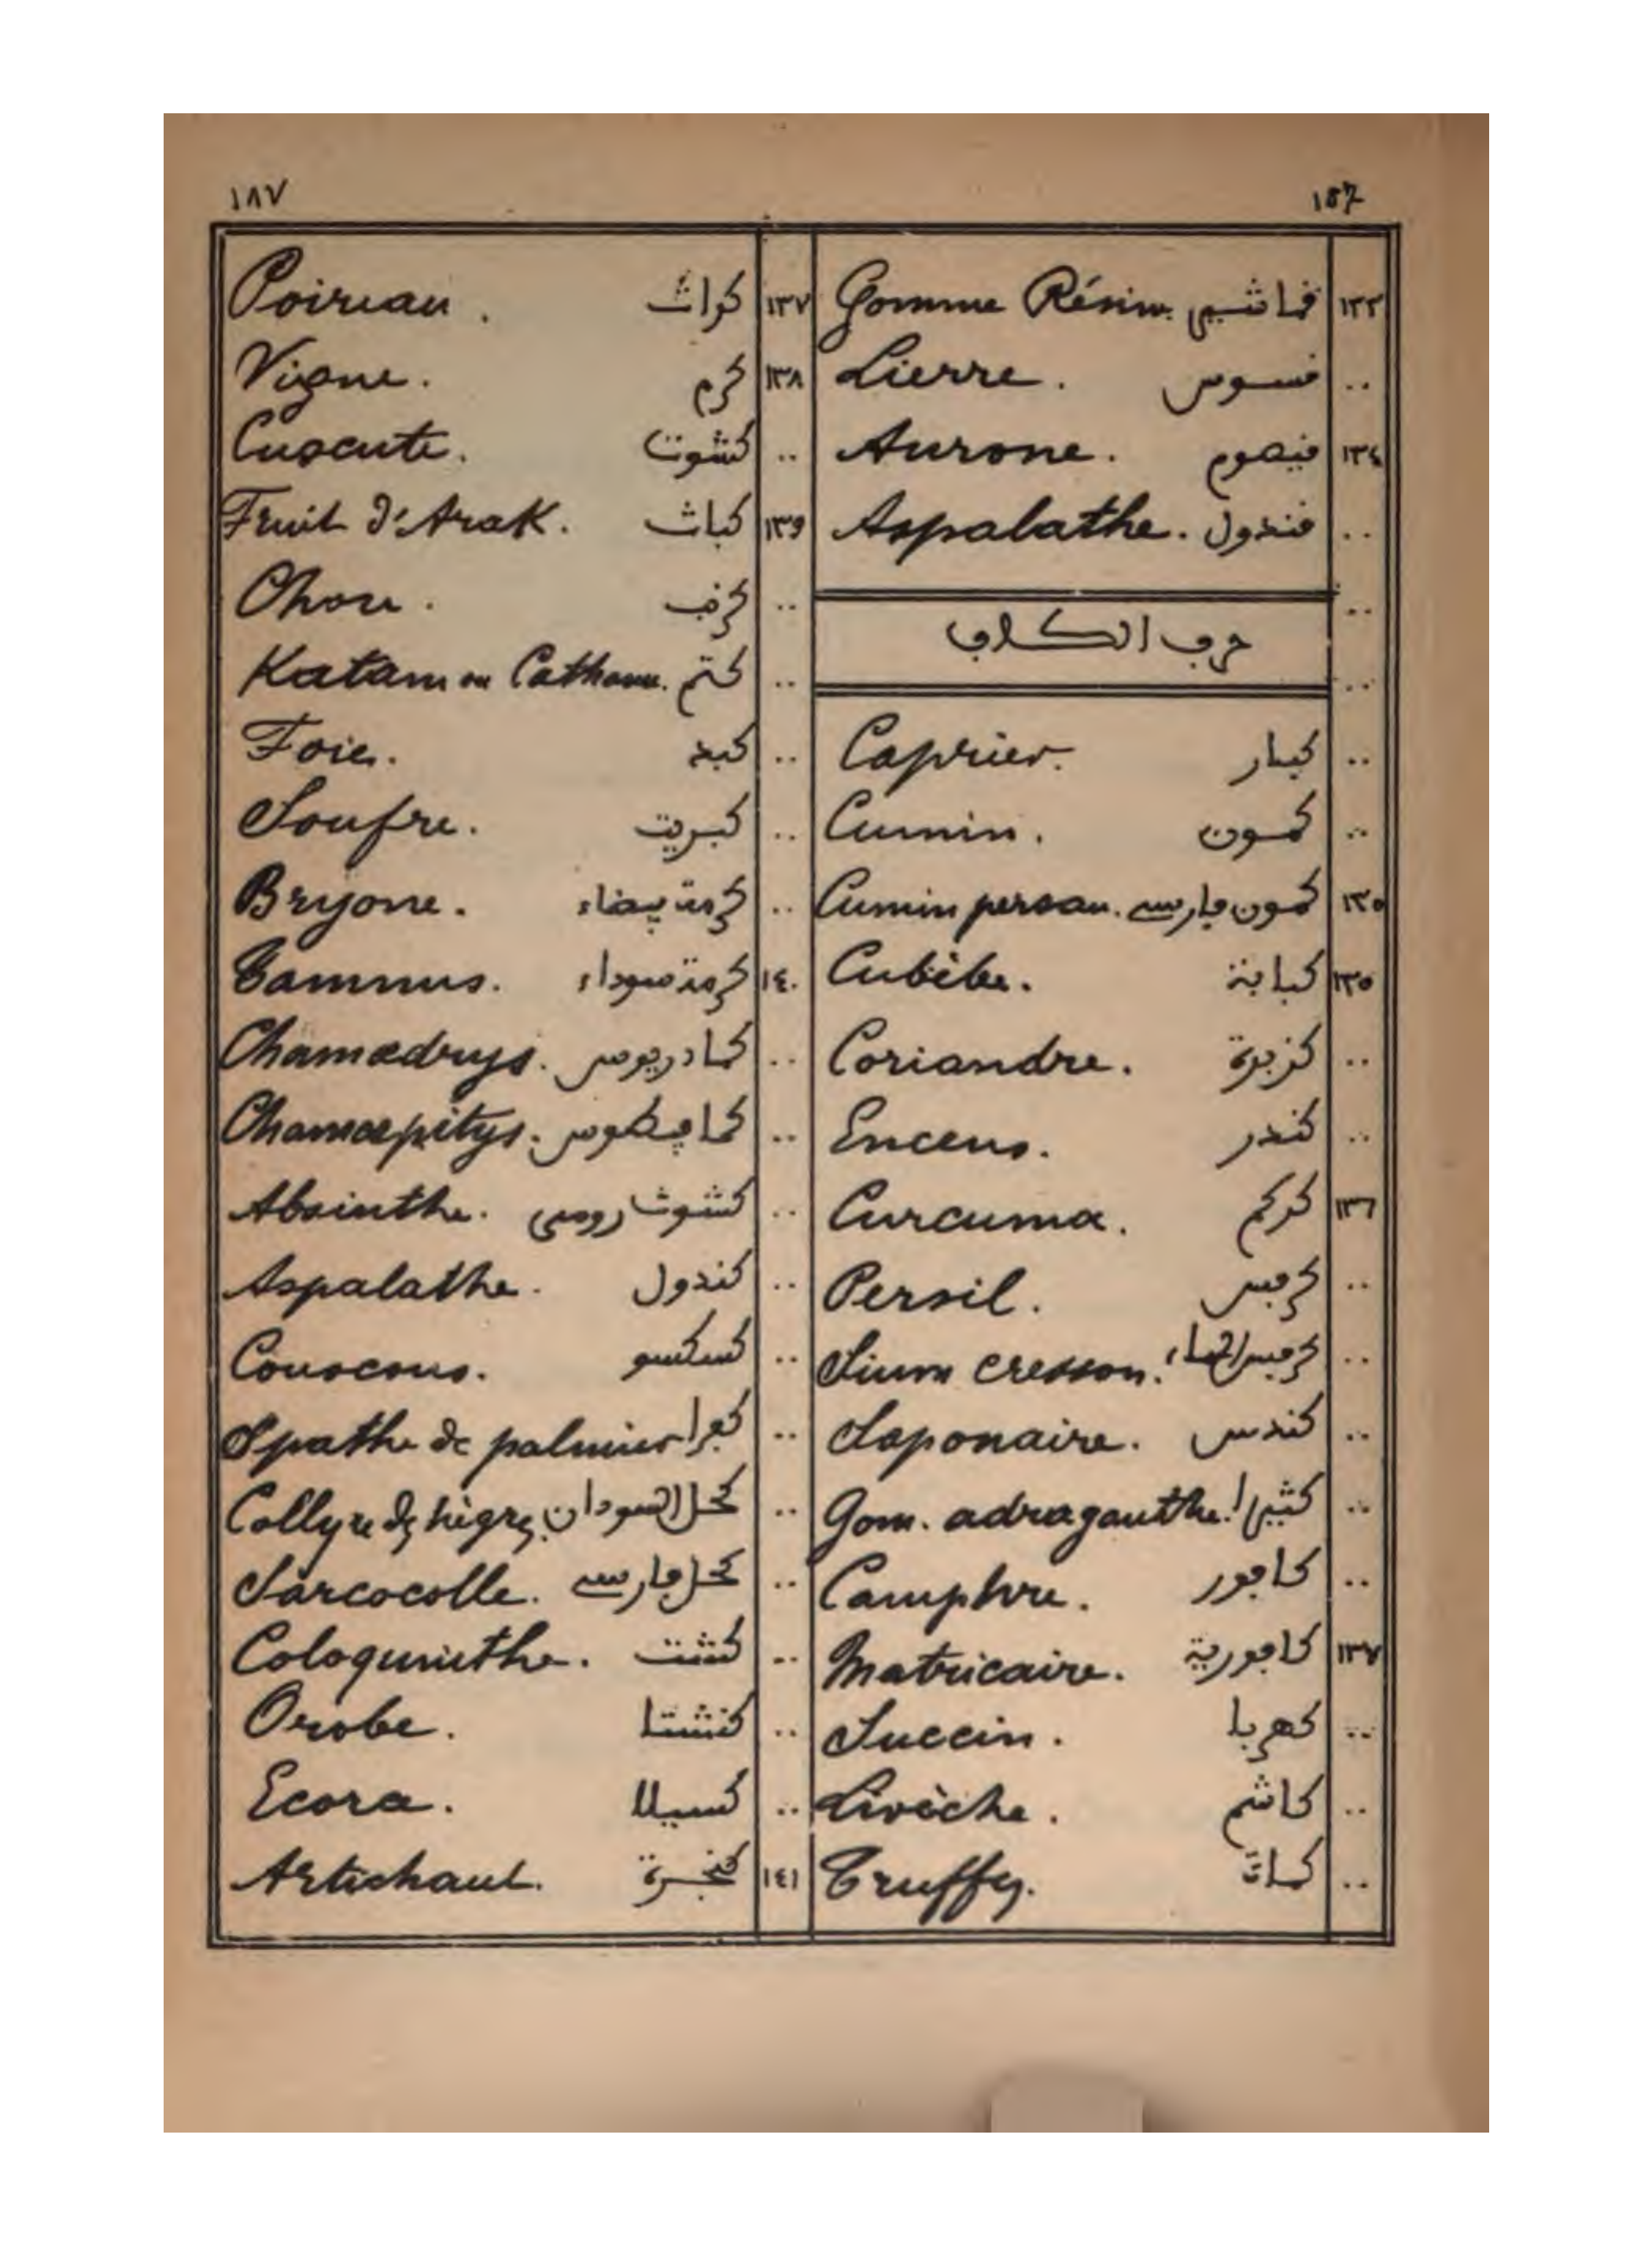 ١٨٧ 187
١٣٣ قماشير Gomme Résine.
.. قسوس Lierre.
١٣٤ قيصوم Aurone.
.. قندول Aspalathe.
..
حرف الكاف
..
.. كبار Caprier.
.. كمون Cumin.
١٣٥ كمون فارسي Cumin persan.
١٣٥ كبابة Cubèbe.
.. كزبرة Coriandre.
.. كندر Encens.
١٣٦ كركم Curcuma.
.. كرفس Persil.
.. كرفس الماء Sium cresson.
.. كندس Saponaire.
.. كثيرا Gom. adraganthe.
.. كافور Camphre.
١٣٧ كافورية Matricaire.
.. كهربا Succin.
.. كاشم Livèche.
.. كمات Truffes.
١٣٧ كراث Poireau.
١٣٨ كرم Vigne.
.. كشوت Cuscute.
١٣٩ كباث Fruit d'Arak.
.. كرنب Chou.
.. كتم Katam ou Catham.
.. كبد Foie.
.. كبريت Soufre.
.. كرمة بيضاء Bryone.
١٤٠ كرمة سوداء Tamnus.
.. كمادريوس Chamædrys.
.. كمافيطوس Chamæpitys.
.. كشوث رومي Absinthe.
.. كندول Aspalathe.
.. كسكسو Couscous.
.. كفرا Spathe de palmier
.. كحل السودان Collyre des nègres.
.. كحل فارسي Sarcocolle.
.. كشت Coloquinthe.
.. كشتا Orobe.
.. كسيلا Ecora.
١٤١ كنجرة Artichaut.